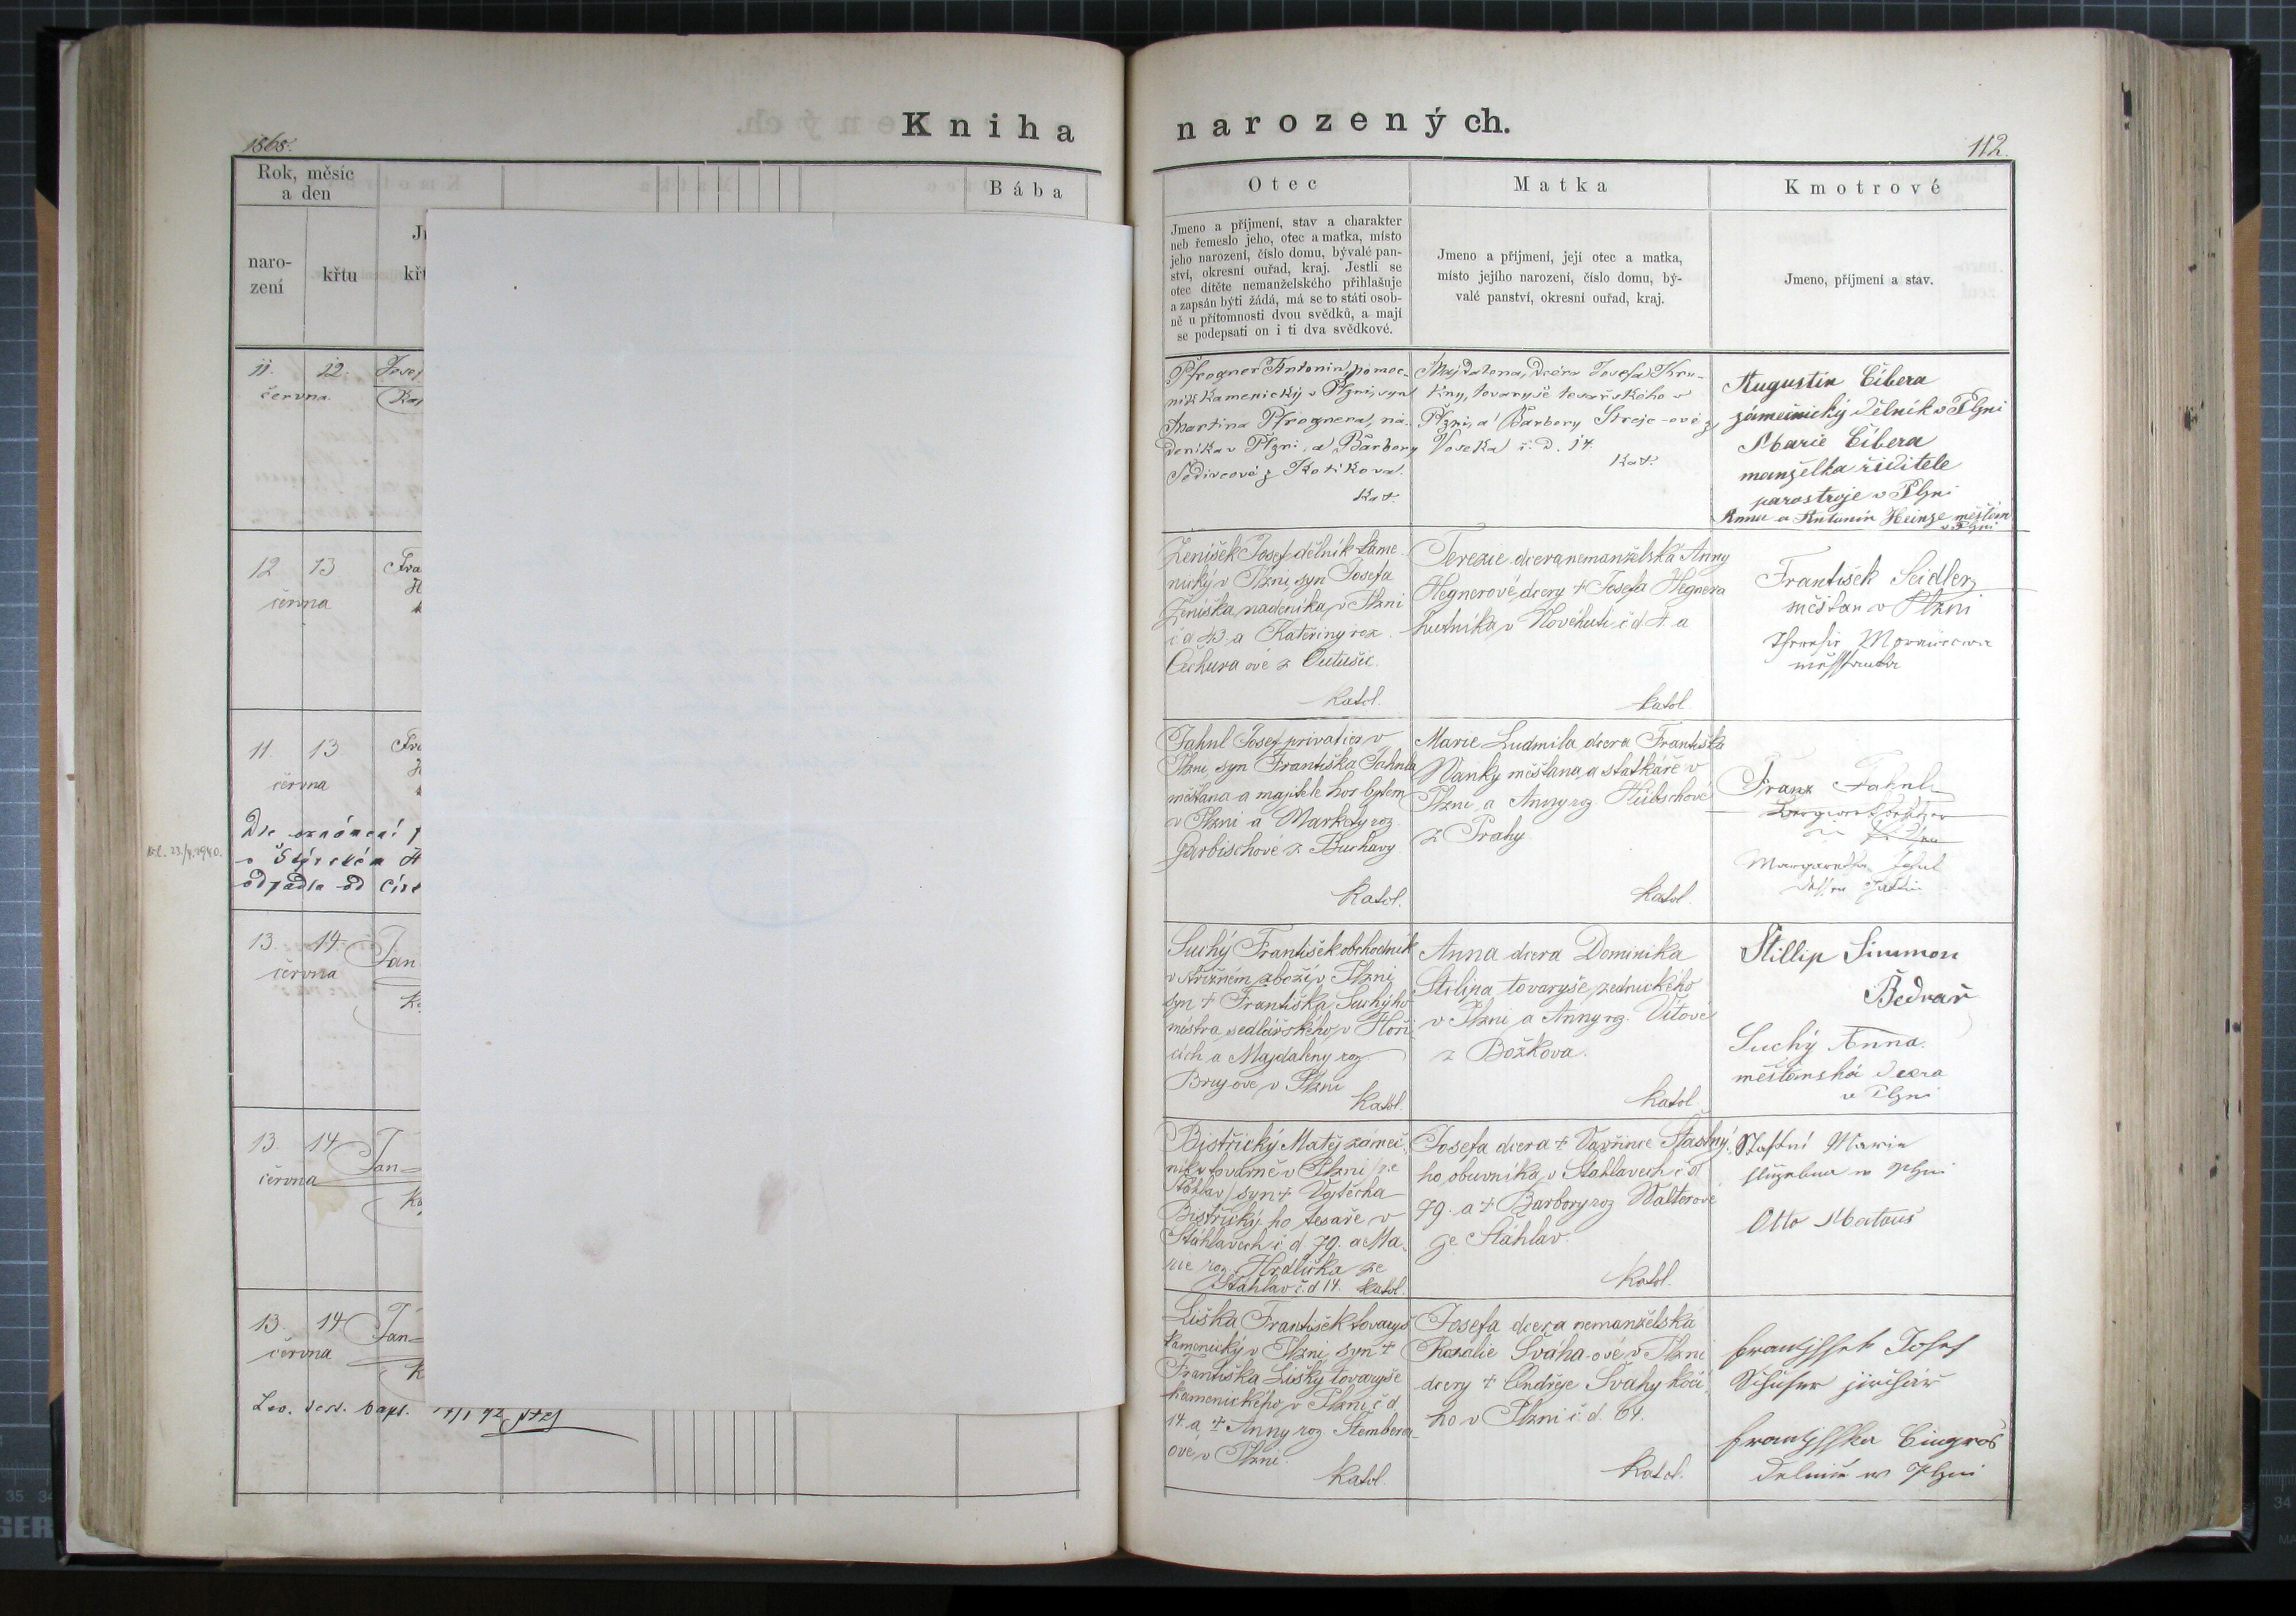 Kniha
1868.
Rok, měsíc
a den
Bába
naro-
zení
křtu
11. 12.
června
12 13
června
11. 13
června
Dle oznámení
odpadla od
13. 14.
června
Jan
13. 14.
června
Jan
13. 14
června
Jan
narozených.
112.
Otec
Matka
Kmotrové
Jmeno a příjmení, stav a charakter
neb řemeslo jeho, otec a matka, místo
jeho narození, číslo domu, bývalé pan-
ství, okresní ouřad, kraj. Jestli se
otec dítěte nemanželského přihlašuje
a zapsán býti žádá, má se to státi osob-
ně u přítomnosti dvou svědků, a mají
se podepsati on i ti dva svědkové.
Jmeno a příjmení, její otec a matka,
místo jejího narození, číslo domu, bý-
valé panství, okresní ouřad, kraj.
Jmeno, příjmení a stav.
Pfrogner Antonín, pomoc-
ník kamenický v Plzni, syn
Martina Pfrognera, ná-
deníka v Plzni, a Barbory
z Kotíkova.
kat.
Majdalena, dcera Josefa
tovaryše tesařského v
Plzni, a Barbory
Voseka č. d. 14.
kat.
Augustin Cibera
zámečnický dělník v Plzni
Marie Cibera
manželka řiditele
parostroje v Plzni
Anna a Antonín Heinze
v Plzni
Ženíšek Josef dělník kame-
nický v Plzni, syn Josefa
Ženíška, nádeníka v Plzni
a Kateřiny roz.
Čechura-ové z
katol.
Terezie dcera nemanželská Anny
Hegnerové, dcery † Josefa Hegnera
hutníka v Novéhuti č d 4. a
katol.
František Seidler
měšťan v Plzni
Jahnl Josef privatier v
Plzni, syn Františka Jahnla
měšťana a majitele hor bytem
v Plzni a Markety roz.
Garbischové z
katol.
Marie Ludmila, dcera Františka
Wanky měšťana a statkáře v
Plzni, a Anny rz. Hübschové
z Prahy
katol.
Franz Jahnl
Suchý František obchodník
v střižném zboží v Plzni
syn † Františka Suchýho
mistra sedlářského v Hoři-
cích a Majdaleny roz.
v Plzni
katol.
Anna dcera Dominika
Stilipa tovaryše zednického
v Plzni a Anny rz. Vítové
z Božkova.
katol.
Stillip Simmon
Bednař
Suchý Anna.
měšťanská dcera
v Plzni
Bistřický Matěj zámeč-
ník v továrně v Plzni /ze
Štáhlav/ syn † Vojtěcha
Bistřický-ho tesaře v
Štáhlavech č d 79. a Ma-
rie roz. Hrdlička ze
Štáhlav č. d 14. katol.
Josefa dcera † Vavřince Šťastný-
ho, obuvníka v Štáhlavech č d
79. a † Barbory roz Walterové
ze Štáhlav.
katol.
Otto Mataus
Liška František tovaryš
kamenický v Plzni, syn †
Františka Lišky tovaryše
kamenického v Plzni č d
14. a † Anny roz
ové v Plzni.
katol.
Josefa dcera nemanželská
Rozalie Šváha-ové v Plzni
dcery † Ondřeje Šváhy kočí-
ho v Plzni č. d. 64.
katol.